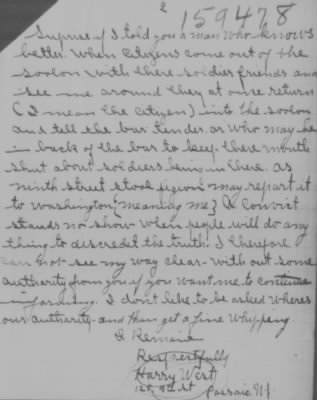 2
159478
Suprise if I told you a man who knows
better. When citizens come out of the
soolon with there soldier friends and
see me around they at once return
(I mean the citizen) into the soolon
and tell the bar tender. or who may be
in back of the bar to keep there mouth
shut about soldiers being in there. as
ninth street stool pigion may repart it
to Washington (meaning me) A Convict
stands no show when people will do any
thing to discredit the truth. I therefore
can not see my way clear with out some
authority from you if you want me to continue
informing. I dont like to be asked wheres
our authority and than get a fine whipping
I Remain
Respectfully
Harry West
9th st Passaic NJ.